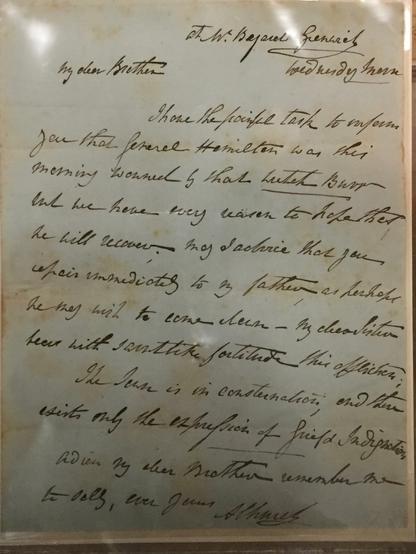 at Mr. Bayard Greenwich
Wednesday Morn
My dear Brother
I have the painful task to inform
you that General Hamilton was this
morning wounded by that wretch Burr
but we have every reason to hope that
he will recover. May I advice that you
repair immediately to my father, as perhaps
he may wish to come down – my dear Sister
bears with saintlike fortitude this affliction;
The Town is in consternation, and there
exists only the expression of Grief & Indignation
adieu my dear Brother remember me
to Sally, ever Yours
A Church